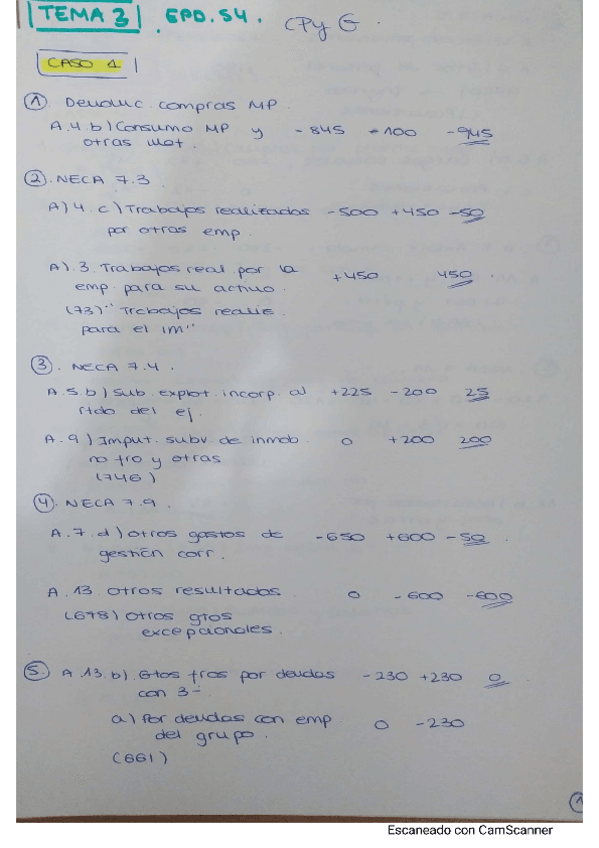 TEMA 3. EPD. S4. CPy G.
CASO 1
① Devoluc. compras MP.
A.4.b) Consumo MP y -845 -100 -945
otras mat.
②. NECA 7.3
A) 4. c) Trabajos realizados -500 +450 -50
por otras emp.
A). 3. Trabajos real. por la +450 450.
emp. para su activo.
(73)" Trabajos realiz.
para el im"
③. NECA 7.4.
A.5.b) Sub. explot. incorp. al +225 -200 25
rtdo del ej.
A.9) Imput. subv de inmob. 0 +200 200
no fro y otras
(746)
④. NECA 7.9.
A.7.d) otros gastos de -650 +600 -50.
gestión corr.
A.13. otros resultados 0 -600 -600
(678) otros gtos
excepcionales.
⑤. A.13.b) Gtos fros por deudas -230 +230 0
con 3
a) Por deudas con emp 0 -230
del grupo.
(661)
①
Escaneado con CamScanner